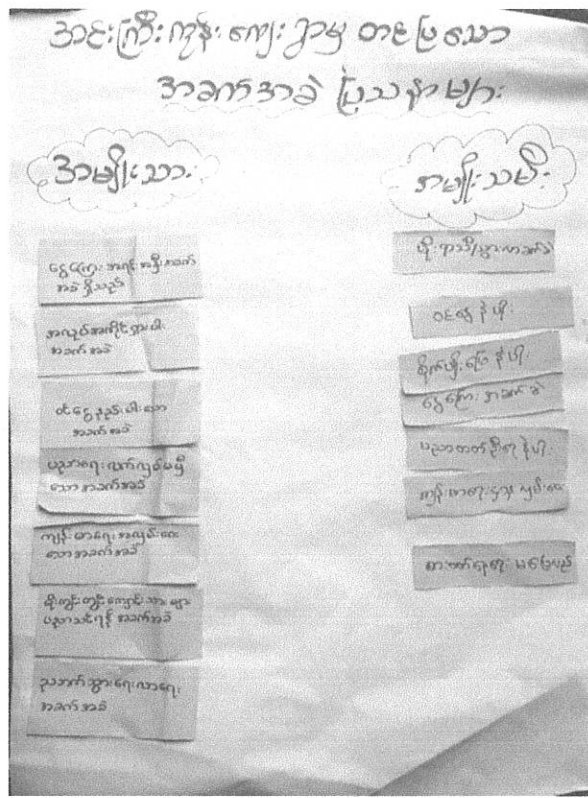 အင်းကြီးကုန်းကျေးရွာမှ တင်ပြသော
အခက်အခဲ ပြဿနာများ
အမျိုးသား
ငွေကြေး အရင်းအနှီး အခက်
အခဲ ရှိသည်
အလုပ်အကိုင် ရှားပါး
အခက်အခဲ
ဝင်ငွေနည်းပါးသော
အခက်အခဲ
ပညာရေး လက်လှမ်းမမှီ
သော အခက်အခဲ
ကျန်းမာရေး အလှမ်းဝေး
သော အခက်အခဲ
ကျောင်းသားများ
ပညာသင်ရန် အခက်အခဲ
ညဘက်သွားရေးလာရေး
အခက်အခဲ
အမျိုးသမီး
ဝင်ငွေနဲပါး
စိုက်ပျိုးမြေနဲပါး
ငွေကြေး အခက်ခဲ
ပညာတတ်ဦးရေနဲပါး
ကျန်းမာရေးဌာန လှမ်းဝေး